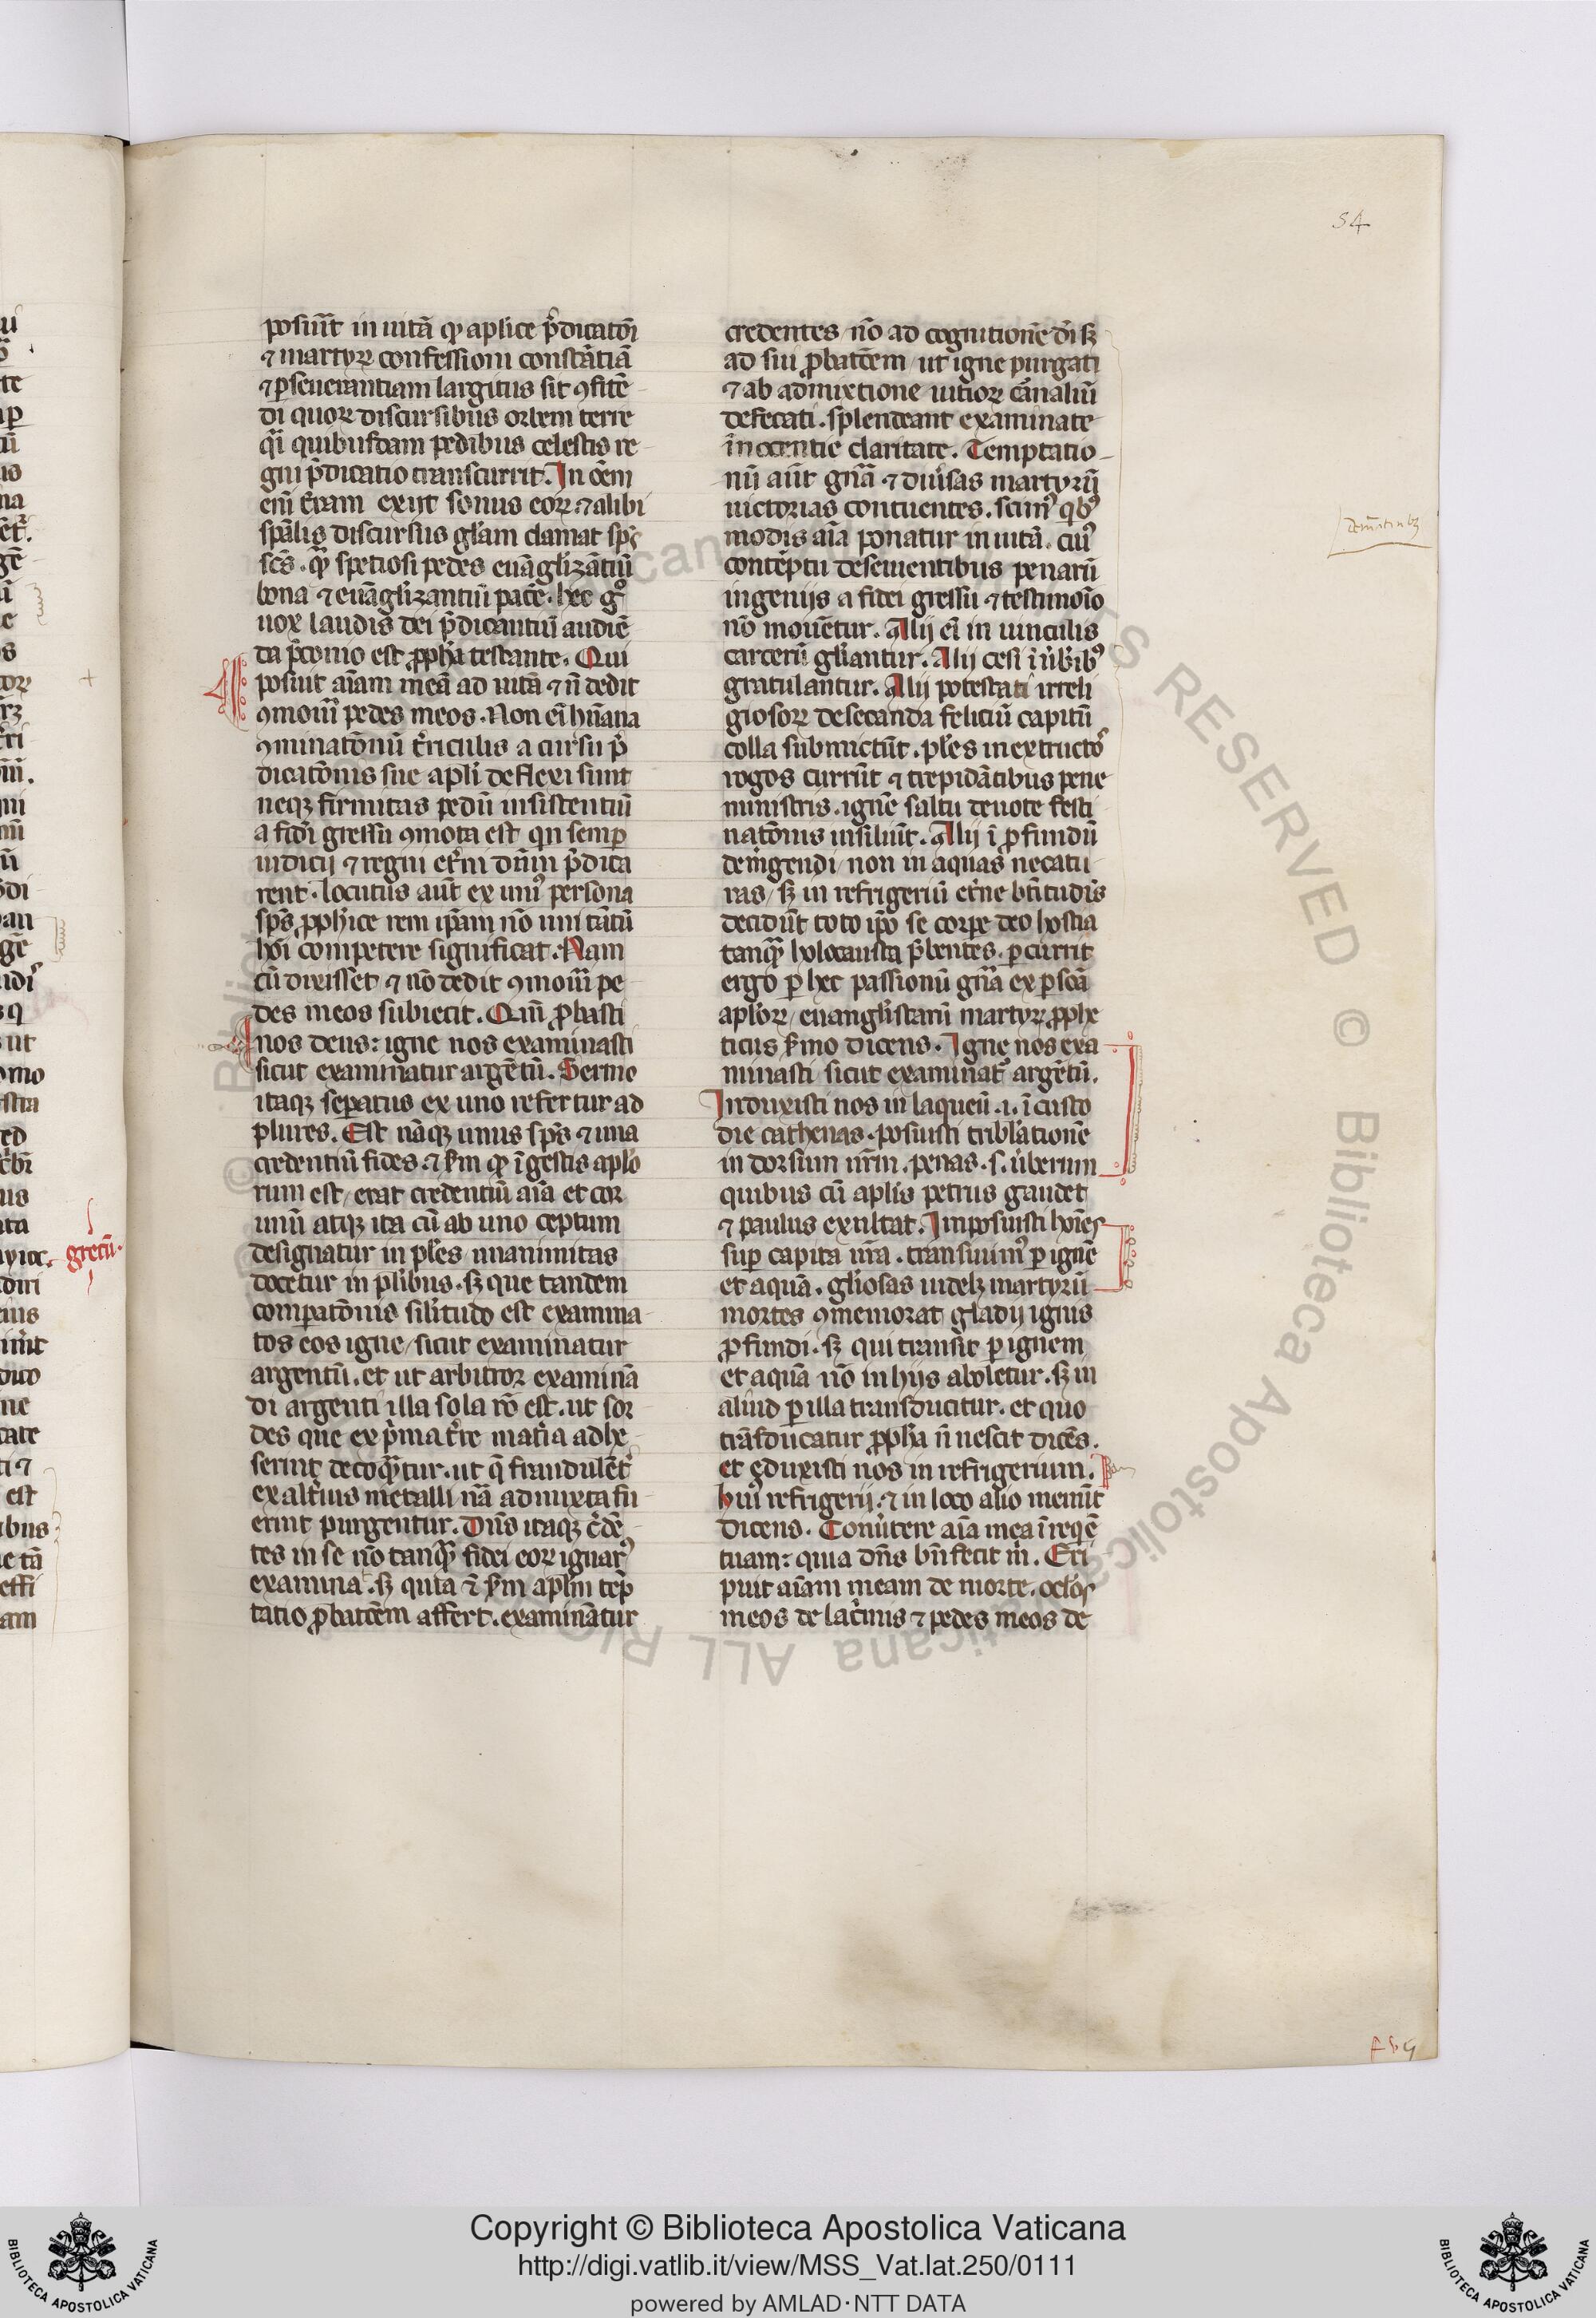 54
posuit in uitã qꝫ aplice p̃dicatõi
⁊ martyrꝝ confessioni constãtiã
⁊ ꝑseuerantiam largitus sit ꝯfitẽ
di quoꝝ discursibus orbem terre
qͣi quibusdam pedibus celestis re
gni p̃dicatio transcurrit. In oẽm
eni t̃ram exijt sonus eoꝝ ⁊ alibi
sp̃alis discursus gl̃iam clamat sp̃s
sc̃s. qͣ spetiosi pedes euãgl̃izãtiũ
bona ⁊ euãgl̃izantiũ pacẽ. hec gͦ
uox laudis dei p̃dicantiũ audiẽ
da p̃conio est ꝓph̃a testante. Qui
posuit aĩam meã ad uitã ⁊ ñ dedit
ꝯmoũi pedes meos. Non eĩ hũana
ꝯminatõnũ t̃riculis a cursu p̃
dicatõnis sue apl̃i deflexi sunt
neqꝫ firmitas pedũ insistentiũ
a fidei gressu ꝯmota est qñ semꝑ
iudicij ⁊ regni et̃ni dñm p̃dica
rent. locutus aũt ex uniꝰ persona
sp̃s ꝓph̃ice rem ip̃am nõ uni tãtũ
hoĩ competere significat. Nam
cũ dixisset ⁊ nõ dedit ꝯmoũi pe
des meos subiecit. Qm̃ ꝓbasti
nos deus: igne nos examinasti
sicut examinatur argẽtũ. Sermo
itaqꝫ separatus ex uno refertur ad
plures. Est nãqꝫ unus sp̃s ⁊ una
credentiũ fides. ⁊ s̃m qꝫ ĩ gestis apl̃o
rum est, erat credentiũ aĩa et cor
unũ atqꝫ ita cũ ab uno ceptum
designatur in pl̃es unanimitas
docetur in plĩbus. sꝫ que tandem
comparatõnis sil̃itudo est examina
tos eos igne, sicut examinatur
argentũ. et ut arbitror examinã
di argenti illa sola rõ est. ut sor
des que ex p̃ma t̃re mat̃ia adhe
serint decoqͣtur. ut q̃ fraudulẽt̃
ex alt̃ius metalli nã admixta fu
erint purgentur. Dñs itaqꝫ c̃dẽ
tes in se nõ tanqͣ fidei eoꝝ ignarꝰ
examina᷑. sꝫ quia ẽ s̃m apl̃m tẽp
tatio ꝓbatõem affert. examinãtur
credentes, nõ ad cognitionẽ dĩ sꝫ
ad sui ꝓbatõem, ut igne purgati
⁊ ab admixtione uitioꝝ c̃analiũ
defecati. splendeant examinate
ĩnocentie claritate. Temptatio
nũ aũt gñã ⁊ diũsas martyrũ
uictorias contuentes. scimꝰ qbꝰ
modis aĩa ponatur in uitã. cuiꝰ
contẽptu deseuientibus penarũ
ingenijs a fidei gressu ⁊ testimoĩo
nõ mouẽtur. Alij eĩ in uinculis
carcerũ gl̃iantur. Alij cesi ĩ ũb̃ibꝰ
gratulantur. Alij potestati irreli
giosoꝝ desecanda feliciũ capitũ
colla submictũt. pl̃es inextructoꝰ
rogos currũt ⁊ trepidãtibus pene
ministris. ignẽ saltu deuote festi
natõnis insiliũt. Alij ĩ ꝓfundũ
dem̃gendi, non in aquas necatu
ras, sꝫ in refrigeriũ et̃ne btĩtudĩs
decidũt toto ip̃o se corpe deo hostia
tanqͣ holocausta p̃bentes. ꝑcurrit
ergo ꝑ hec passionũ gñã ex ꝑsõa
apl̃oꝝ, euangl̃istarũ martyꝝ ꝓphe
ticus s̃mo dicens. Igne nos exa
minasti sicut examinat᷑ argẽtũ.
Induxisti nos in laqueũ .i. ĩ custo
die cathenas. posuisti tribl̃ationẽ
in dorsum nr̃m. penas .s. ũberum
quibus cũ apl̃is petrus gaudet
⁊ paulus exultat. Imposuisti hoĩes
suꝑ capita nr̃a. transiuimꝰ ꝑ ignẽ
et aquã. gl̃iosas uidelꝫ martyrũ
mortes ꝯmemorat gladij ignis
ꝓfundi. sꝫ qui transit ꝑ ignem
et aquã nõ in hijs aboletur. sꝫ in
aliud ꝑ illa transducitur. et quo
trãsducatur ꝓph̃a ñ nescit dicẽs.
et eduxisti nos in refrigerium.
huiꝰ refrigerij. ⁊ in loco alio meminit
dicens. Conũtere aĩa mea ĩ reqẽ
tuam: quia dñs bñfecit m̃. Eri
puit aĩam meam de morte. oclõs
meos de lac̃mis ⁊ pedes meos de
grecũ.
Copyright © Biblioteca Apostolica Vaticana
http://digi.vatlib.it/view/MSS_Vat.lat.250/0111
powered by AMLAD·NTT DATA
BIBLIOTECA APOSTOLICA VATICANA
BIBLIOTECA APOSTOLICA VATICANA